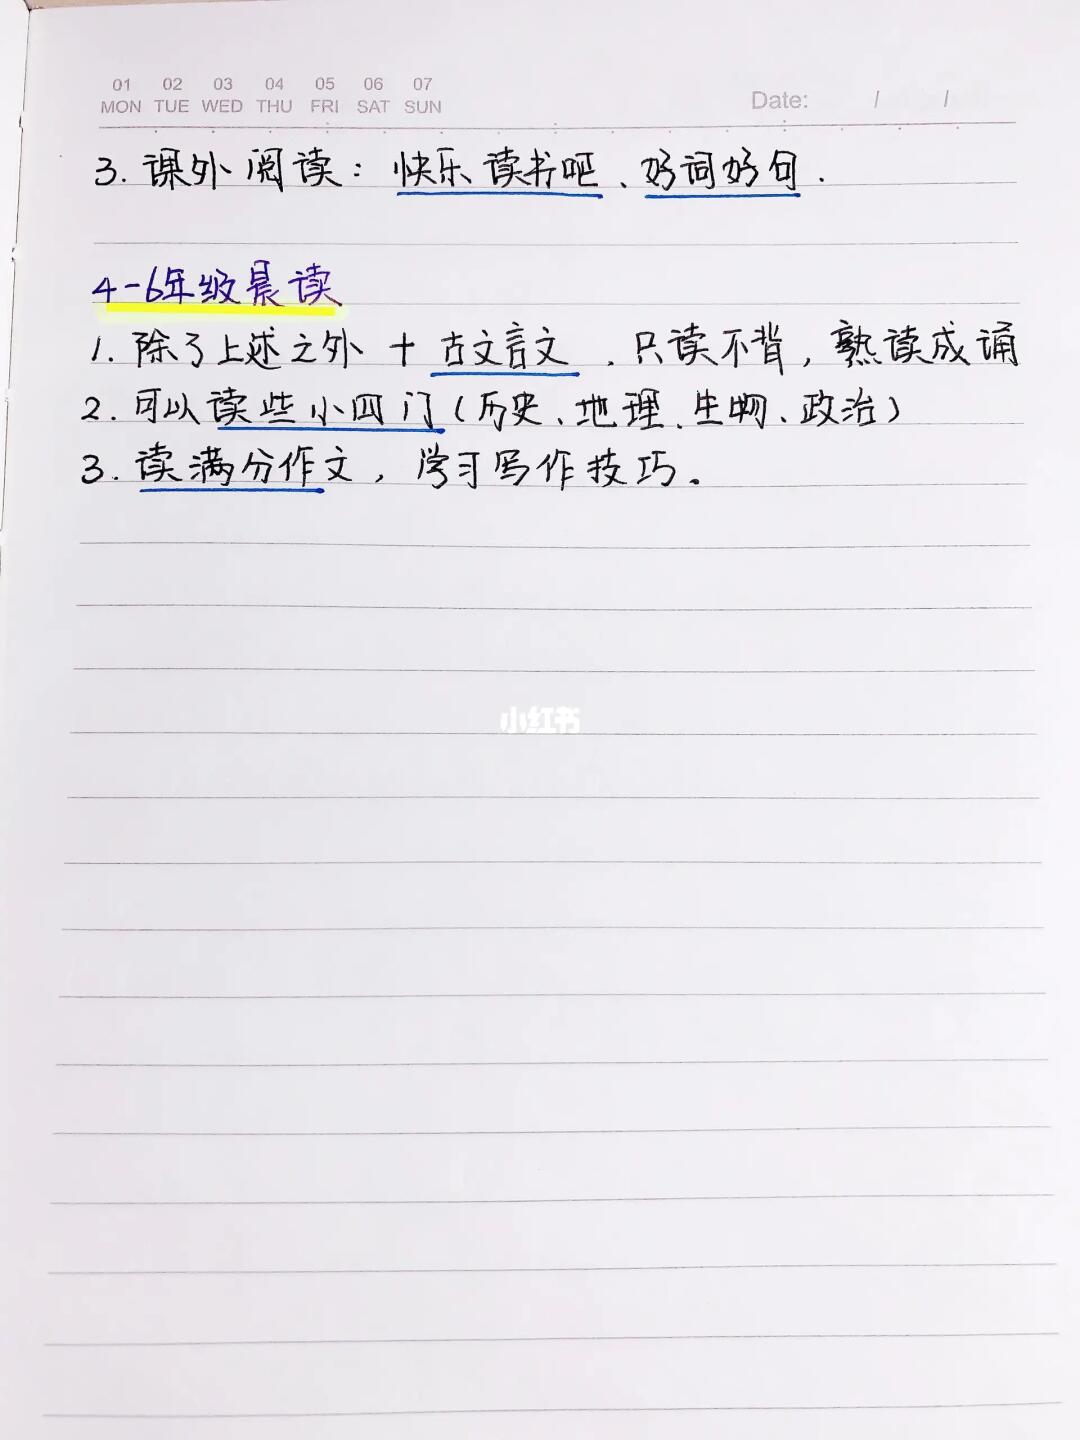 01 02 03 04 05 06 07
MON TUE WED THU FRI SAT SUN
Date: / /
3. 课外阅读：快乐读书吧、好词好句.
4-6年级晨读
1. 除了上述之外 + 古文言文，只读不背，熟读成诵
2. 可以读些小四门(历史、地理、生物、政治)
3. 读满分作文，学习写作技巧。
小红书